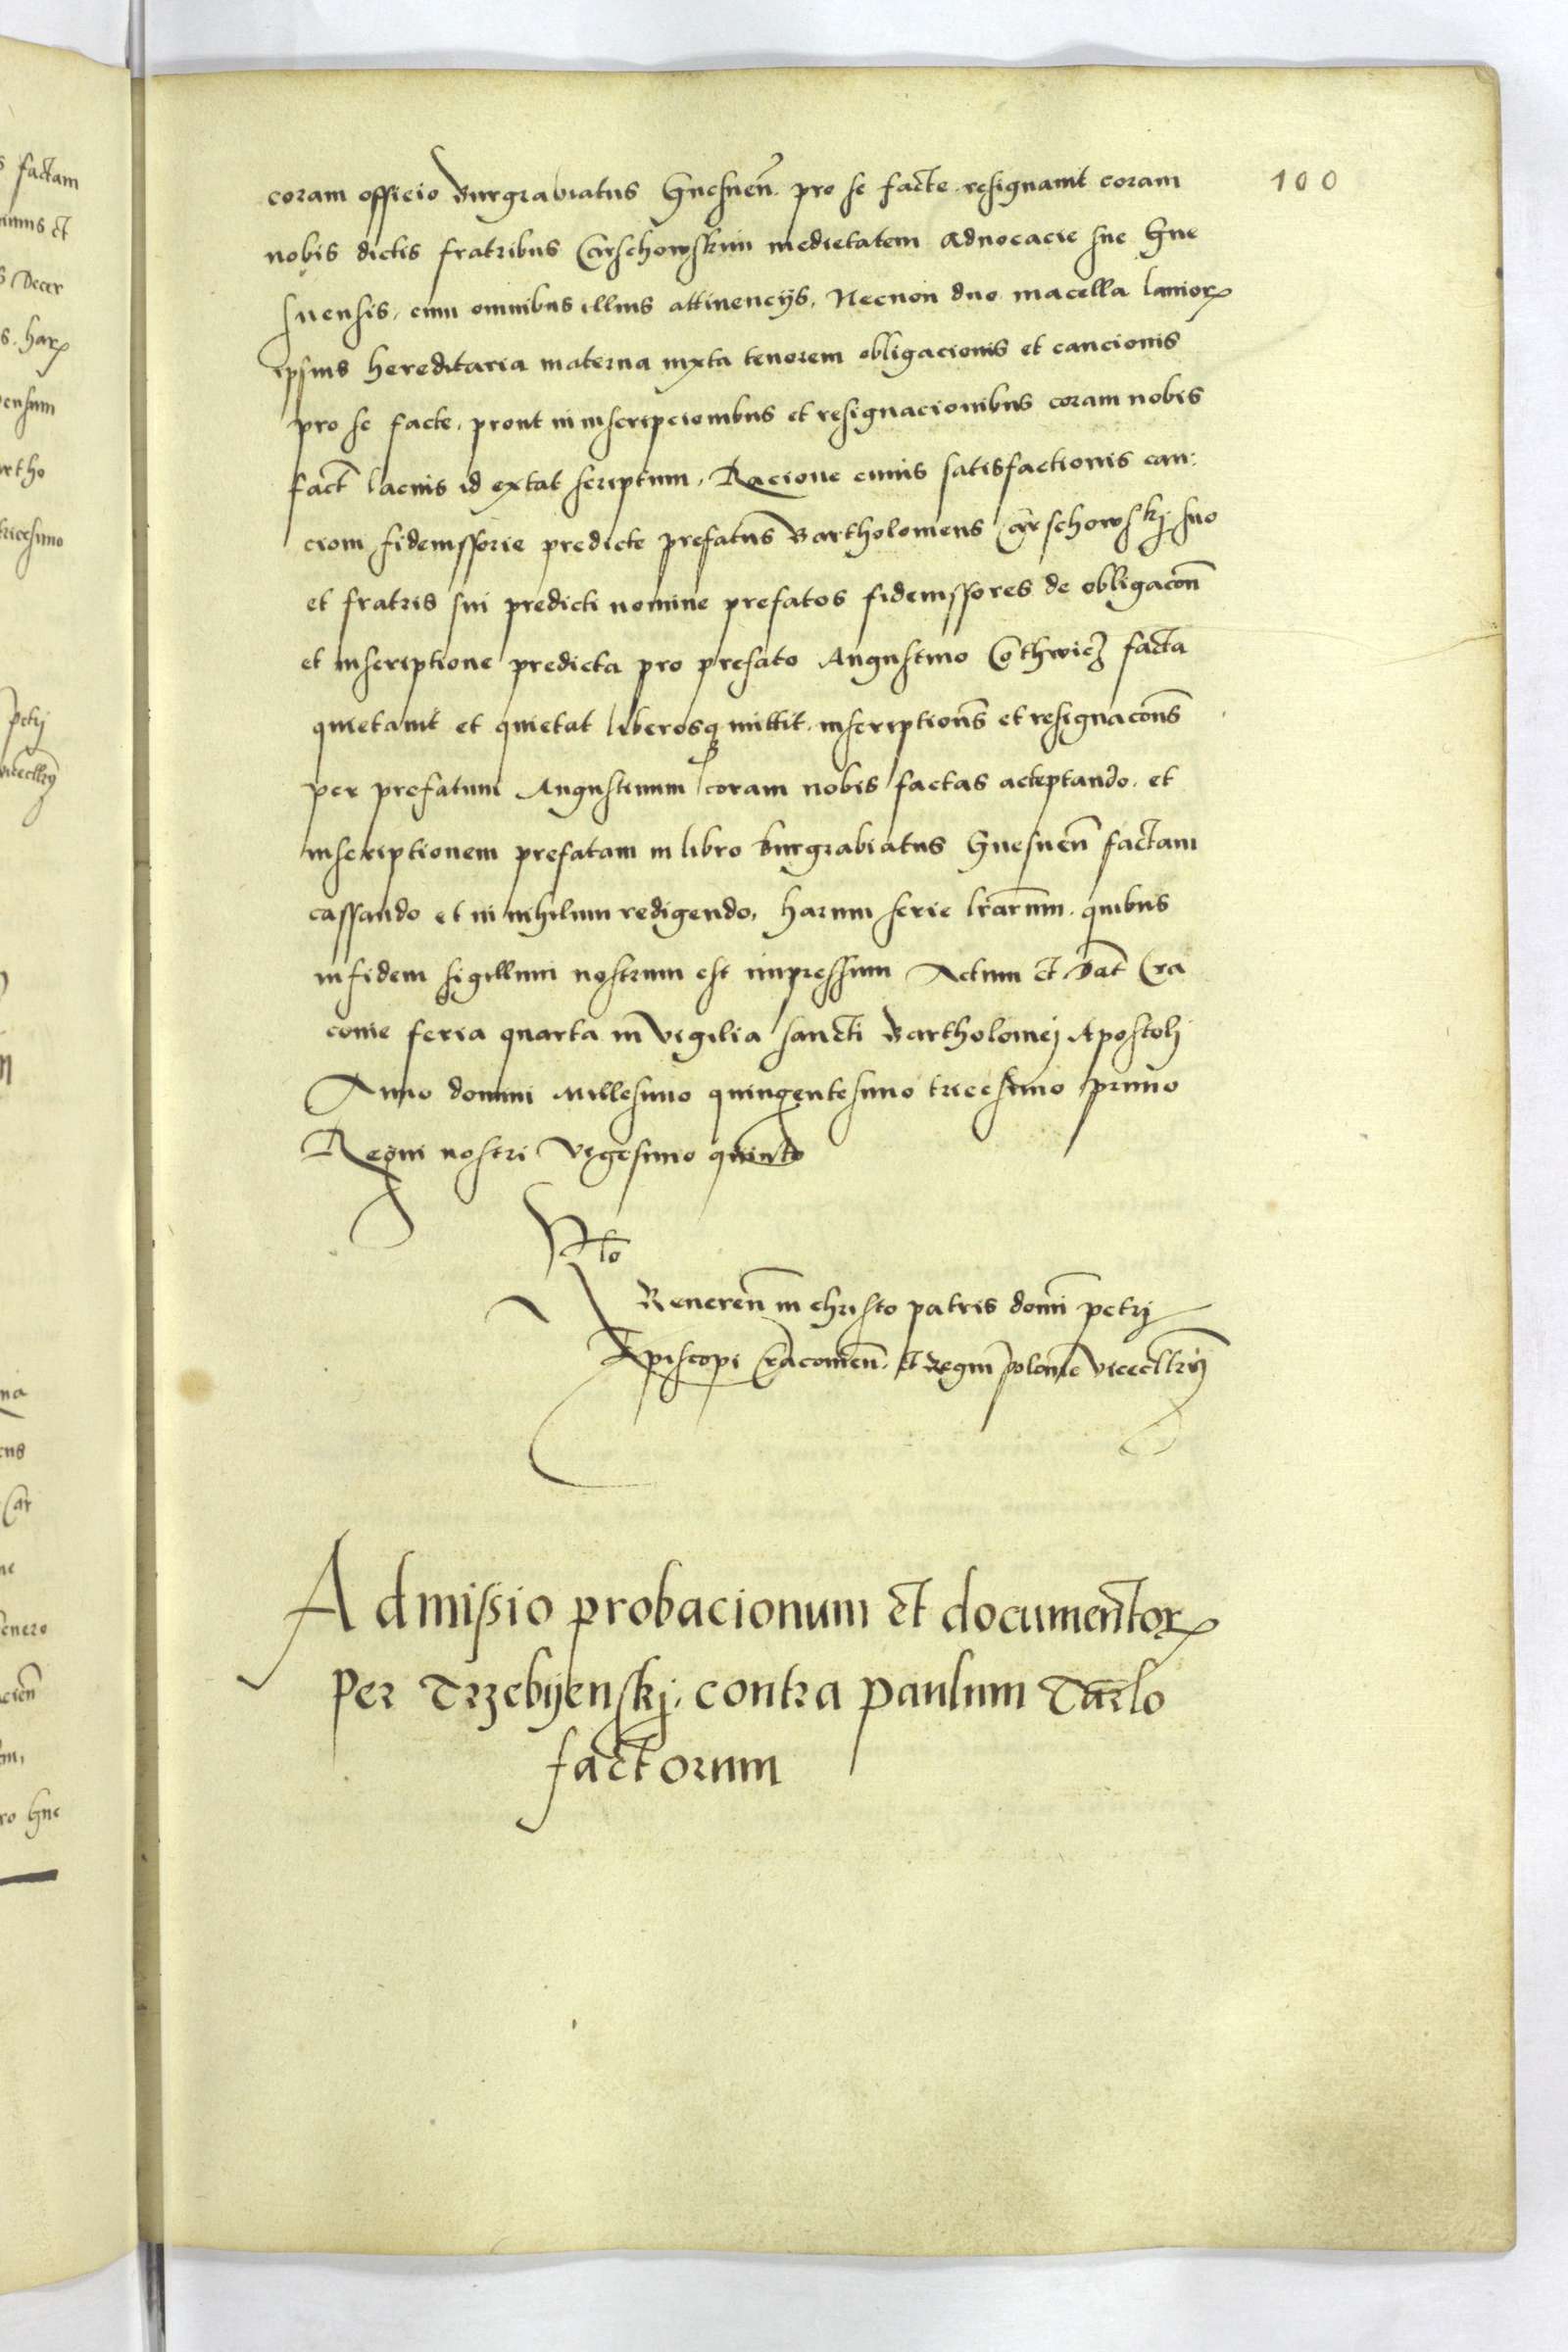 100
coram officio Burgrabiatus Gnesnen̄. pro se facte. resignavit coram
nobis dictis fratribus Carschowskim medietatem advocacie sue Gne
snensis, cum omnibus illius attinencijs, Necnon duo macella laniorꝝ
ipsius hereditaria materna iuxta tenorem obligacionis et caucionis
pro se facte, prout in inscripcionibus et resignacionibus coram nobis
fact̄ lacius id extat scriptum, Racione cuius satisfactionis cau:
ciom fideiussorie predicte prefatus Bartholomeus Carschowskj suo
et fratris sui predicti nomine prefatos fideiussores de obligacōn̄
et inscriptione predicta pro prefato Augustino Cothwicz facta
quietavit et quietat liberosqꝫ mittit. inscriptiōns et resignacōns
per prefatum Augustinum coram nobis factas acceptando. et
inscriptionem prefatam in libro burgrabiatus Gnesnen̄ factam
cassando et in nihilum redigendo, harum serie lrārum. quibus
in fidem sigillum nostrum est impressum Actum et Dat̄ Cra
covie feria quarta in vigilia sancti Bartholomej Apostolj
Anno domini Millesimo quingentesimo tricesimo primo
Regni nostri vigesimo quinto
Rtō
Reveren̄ in christo patris domī petrj
Episcopi Cracovien̄. et Regni poloniē vicecllrij
Admissio probacionum et documentorꝝ
per Trzebyenskj, contra paulum Tarlo
factorum
factam
Decer
s. harꝝ
censum
artho
tricesimo
petrj
vicecllrij
Car